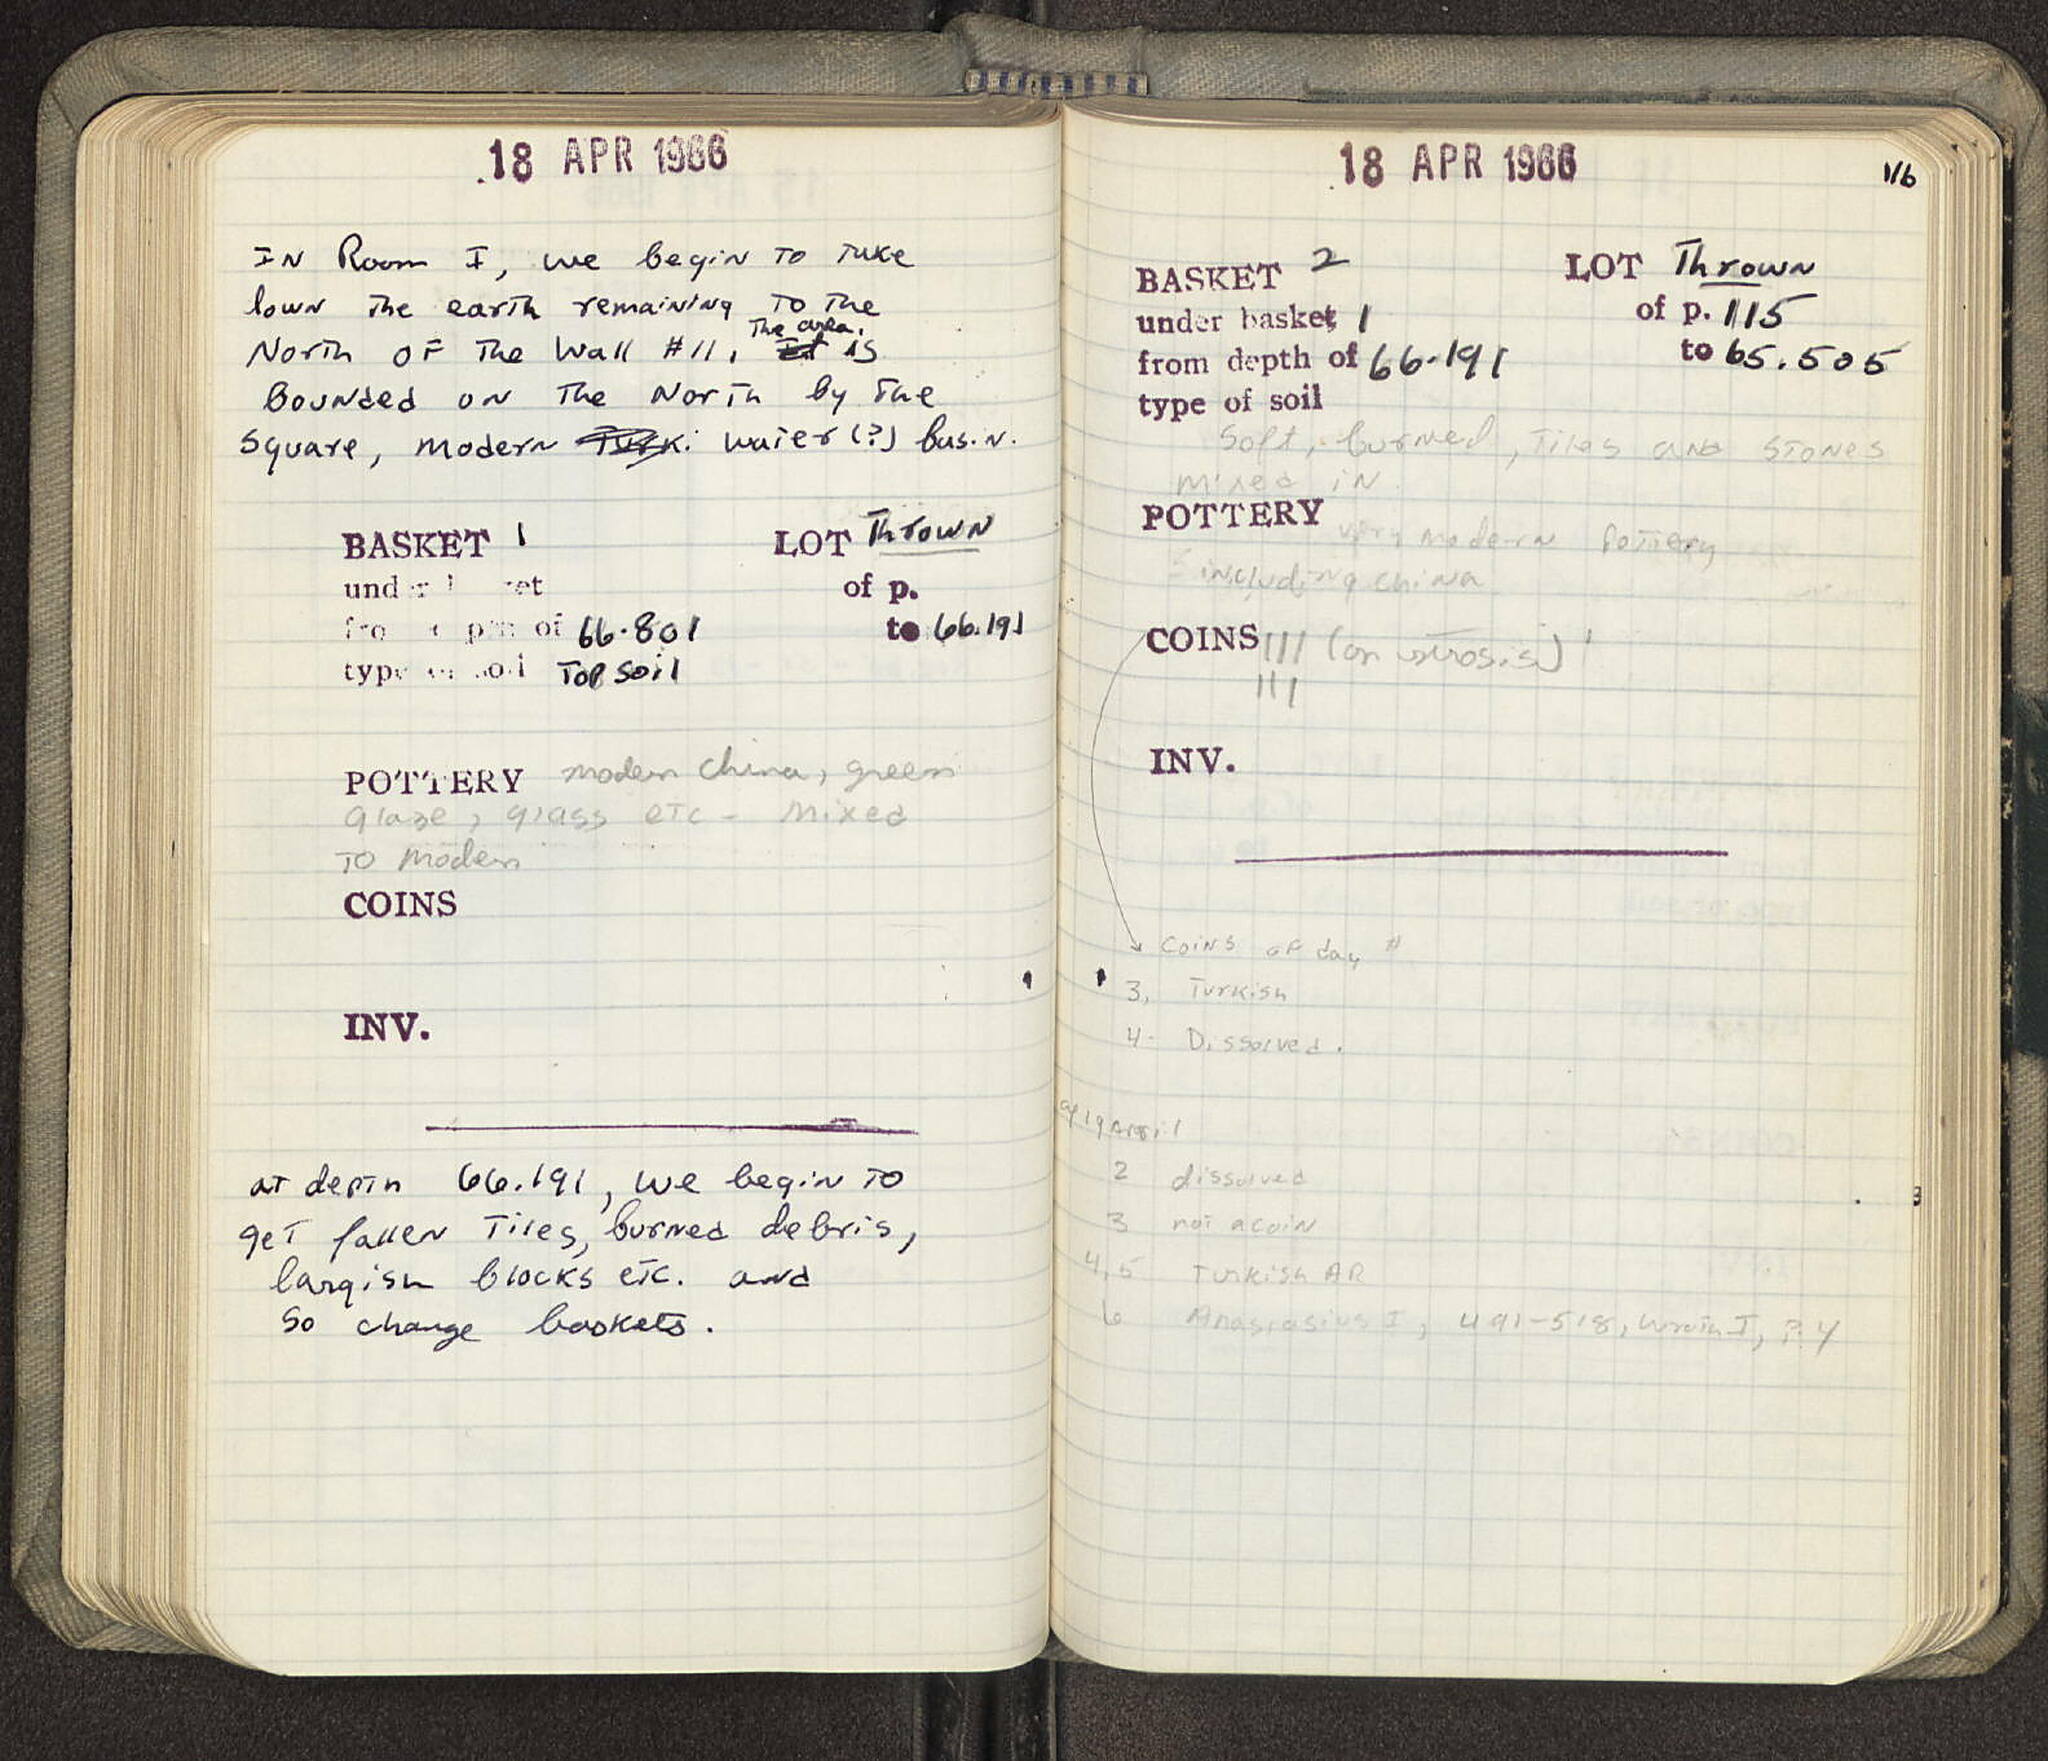 18 APR 1966
IN Room I, we begin to take
down the earth remaining to the
North of the Wall #11. The area is
bounded on the North by the
square, modern water (?) basin.
BASKET 1 LOT Thrown
under basket of p.
from depth of 66.801 to 66.191
type of soil Top soil
POTTERY modern china, green
glaze, glass etc - mixed
to modern
COINS
INV.
at depth 66.191, we begin to
get fallen tiles, burned debris,
largish blocks etc. and
so change baskets.
18 APR 1966 116
BASKET 2 LOT Thrown
under basket 1 of p. 115
from depth of 66.191 to 65.505
type of soil
Soft, burned, tiles and stones
mixed in
POTTERY very modern pottery
including china
COINS III (on votrosis)
III
INV.
Coins of day #
3, Turkish
4- Dissolved.
of 19 April
2 dissolved
3 not a coin
4,5 Turkish AR
6 Anastasius I, 491-518, Wroth I, P. 4